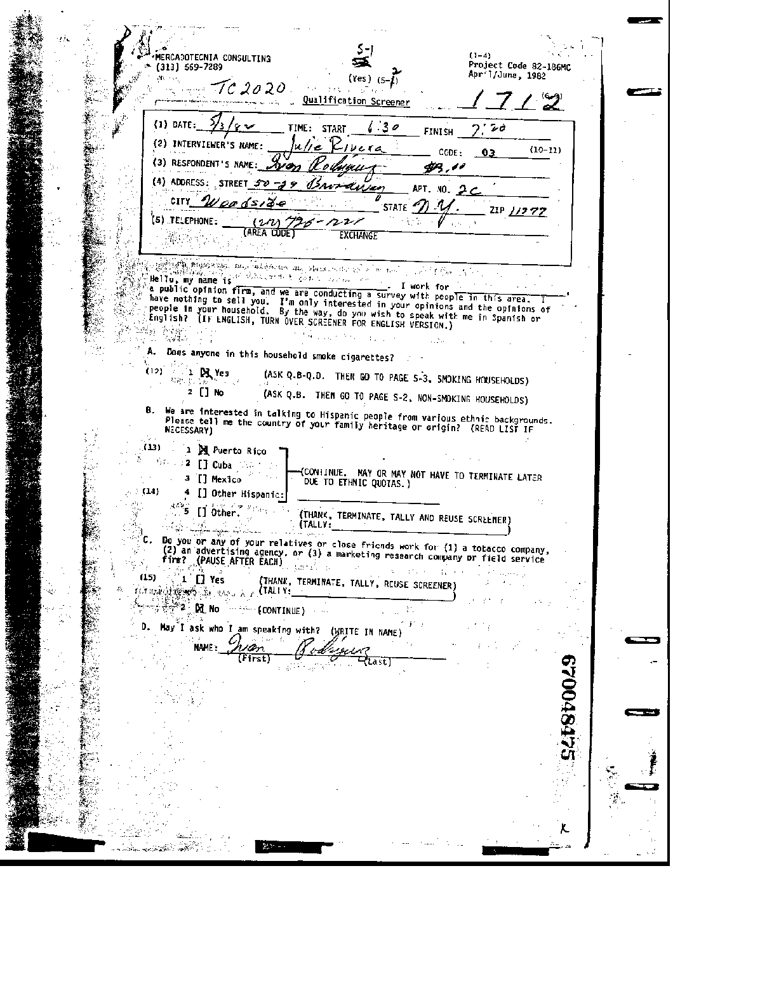 S-1
MERCADOTECNIA CONSULTING
(313) 569-7289
(Yes) (5-
2
(1-4)
Project Code 82-186MC
April/June, 1982
TC2020
Qualification Screener
1712
(1) DATE: 5/3/82 TIME: START 6:30 FINISH 7:20
(2) INTERVIEWER'S NAME: Julie Rivera CODE: 03 (10-11)
(3) RESPONDENT'S NAME: Ivan Rodriguez $3.00
(4) ADDRESS: STREET 50-39 Broadway APT. NO. 2C
CITY Woodside STATE N.Y. ZIP 11377
(5) TELEPHONE:
(AREA CODE) EXCHANGE
Hello, my name is ____. I work for ____,
a public opinion firm, and we are conducting a survey with people in this area. I
have nothing to sell you. I'm only interested in your opinions and the opinions of
people in your household. By the way, do you wish to speak with me in Spanish or
English? (IF ENGLISH, TURN OVER SCREENER FOR ENGLISH VERSION.)
A. Does anyone in this household smoke cigarettes?
(12) 1 [X] Yes (ASK Q.B-Q.D. THEN GO TO PAGE S-3, SMOKING HOUSEHOLDS)
2 [] No (ASK Q.B. THEN GO TO PAGE S-2, NON-SMOKING HOUSEHOLDS)
B. We are interested in talking to Hispanic people from various ethnic backgrounds.
Please tell me the country of your family heritage or origin? (READ LIST IF
NECESSARY)
(13) 1 [X] Puerto Rico
2 [] Cuba
(CONTINUE. MAY OR MAY NOT HAVE TO TERMINATE LATER
3 [] Mexico
DUE TO ETHNIC QUOTAS.)
(14) 4 [] Other Hispanic:
5 [] Other. (THANK, TERMINATE, TALLY AND REUSE SCREENER)
(TALLY: )
C. Do you or any of your relatives or close friends work for (1) a tobacco company,
(2) an advertising agency, or (3) a marketing research company or field service
firm? (PAUSE AFTER EACH)
(15) 1 [] Yes (THANK, TERMINATE, TALLY, REUSE SCREENER)
(TALLY: )
2 [X] No (CONTINUE)
D. May I ask who I am speaking with? (WRITE IN NAME)
NAME: Ivan Rodriguez
(First) (Last)
670048475
K